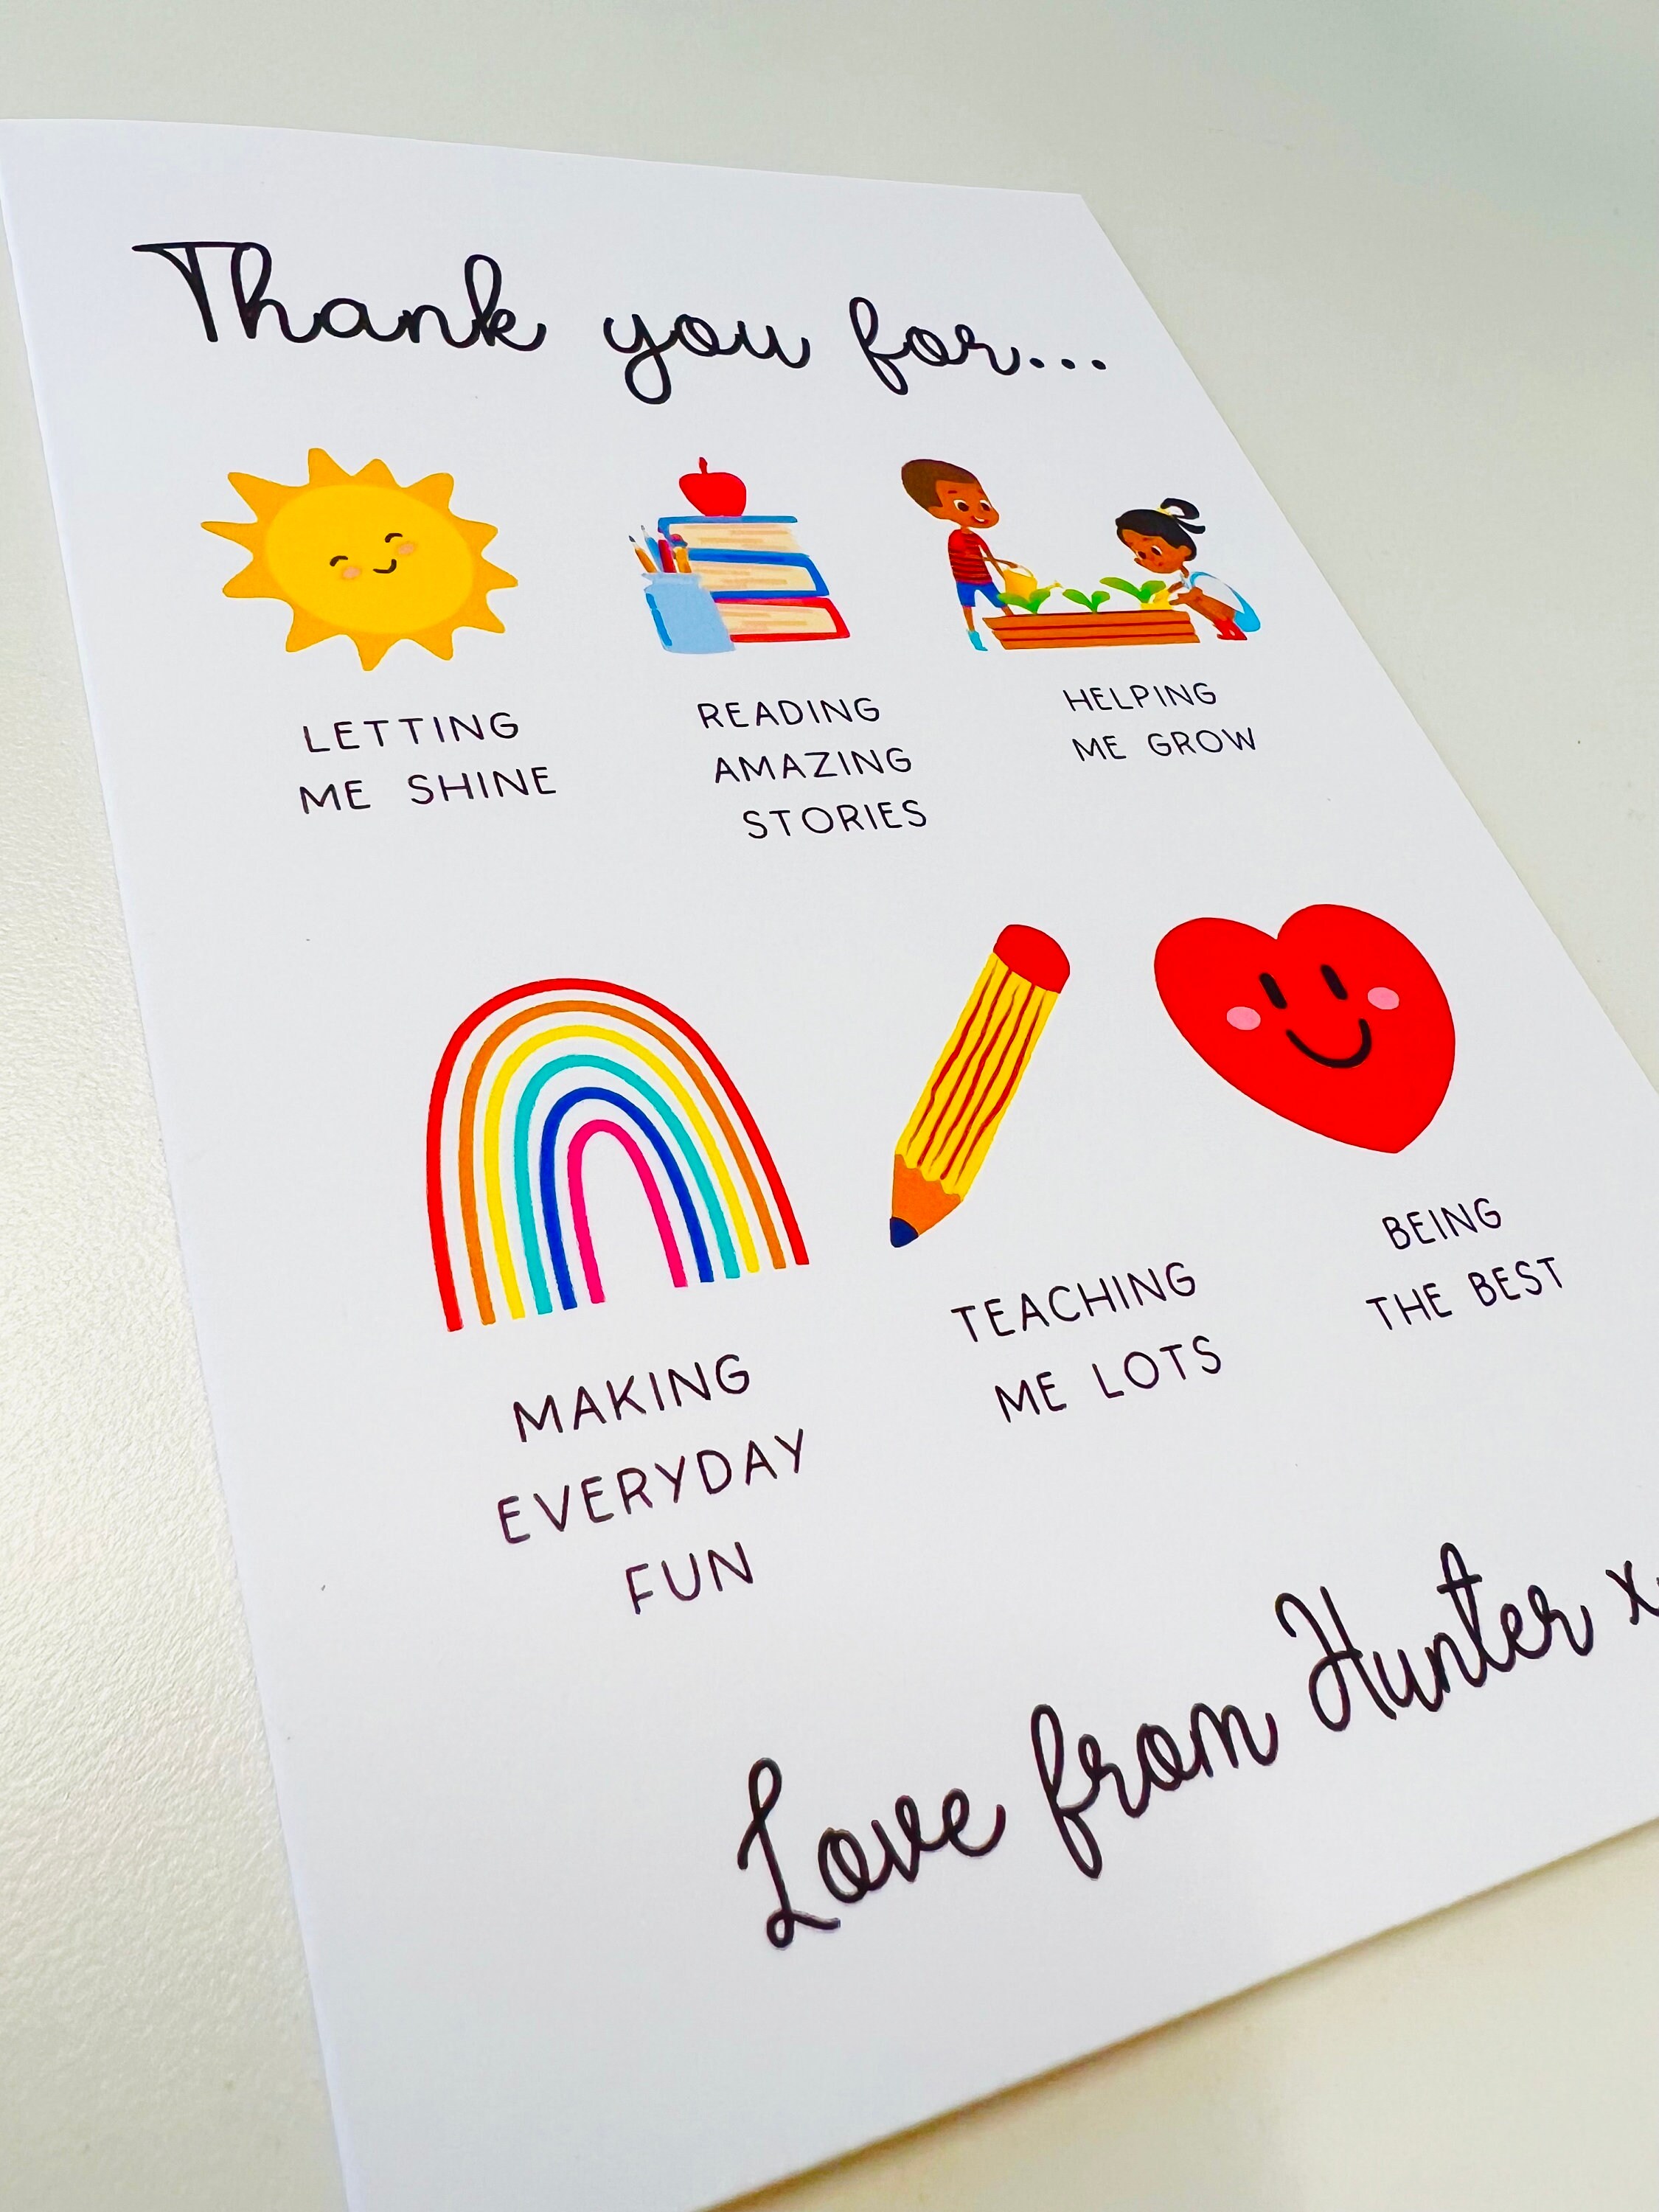 Thank you for...
LETTING
ME SHINE
READING
AMAZING
STORIES
HELPING
ME GROW
MAKING
EVERYDAY
FUN
TEACHING
ME LOTS
BEING
THE BEST
Love from Hunter x